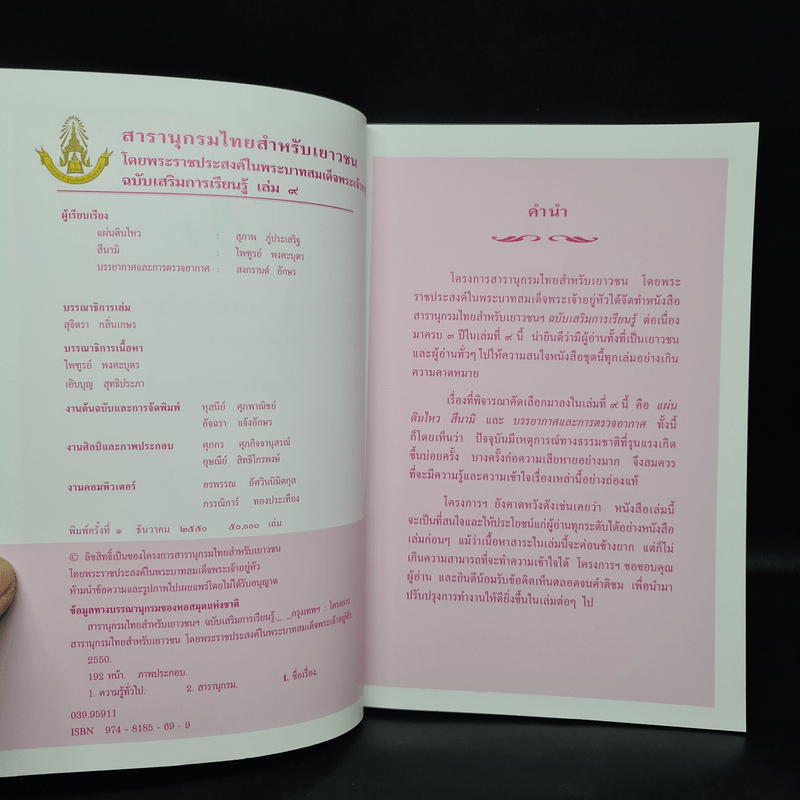 สารานุกรมไทยสำหรับเยาวชน
โดยพระราชประสงค์ในพระบาทสมเด็จพระเจ้าอยู่
ฉบับเสริมการเรียนรู้ เล่ม ๙
ผู้เรียบเรียง
แผ่นดินไหว : สุภาพ ภู่ประเสริฐ
สึนามิ : ไพฑูรย์ พงศะบุตร
บรรยากาศและการตรวจอากาศ : สงกรานต์ อักษร
บรรณาธิการเล่ม
สุจิตรา กลิ่นเกษร
บรรณาธิการเนื้อหา
ไพฑูรย์ พงศะบุตร
เอิบบุญ สุทธิประภา
งานต้นฉบับและการจัดพิมพ์ หุสนีย์ ศุภพาณิชย์
อัจฉรา แจ้งอักษร
งานศิลป์และภาพประกอบ ศุภกร ศุภกิจจานุสรณ์
อุษณีย์ สิทธิไกรพงษ์
งานคอมพิวเตอร์ อรพรรณ อัศวินนิมิตกุล
กรรณิการ์ ทองประเทือง
พิมพ์ครั้งที่ ๑ ธันวาคม ๒๕๕๐ ๕๐,๐๐๐ เล่ม
© ลิขสิทธิ์เป็นของโครงการสารานุกรมไทยสำหรับเยาวชน
โดยพระราชประสงค์ในพระบาทสมเด็จพระเจ้าอยู่หัว
ห้ามนำข้อความและรูปภาพไปเผยแพร่โดยไม่ได้รับอนุญาต
ข้อมูลทางบรรณานุกรมของหอสมุดแห่งชาติ
สารานุกรมไทยสำหรับเยาวชนฯ ฉบับเสริมการเรียนรู้._ _กรุงเทพฯ : โครงการ
สารานุกรมไทยสำหรับเยาวชน โดยพระราชประสงค์ในพระบาทสมเด็จพระเจ้าอยู่หัว.
2550.
192 หน้า. ภาพประกอบ.
1. ความรู้ทั่วไป. 2. สารานุกรม. I. ชื่อเรื่อง.
039.95911
ISBN 974 - 8185 - 69 - 9
คำนำ
โครงการสารานุกรมไทยสำหรับเยาวชน โดยพระ
ราชประสงค์ในพระบาทสมเด็จพระเจ้าอยู่หัวได้จัดทำหนังสือ
สารานุกรมไทยสำหรับเยาวชนฯ ฉบับเสริมการเรียนรู้ ต่อเนื่อง
มาครบ ๓ ปีในเล่มที่ ๙ นี้ น่ายินดีว่ามีผู้อ่านทั้งที่เป็นเยาวชน
และผู้อ่านทั่วๆ ไปให้ความสนใจหนังสือชุดนี้ทุกเล่มอย่างเกิน
ความคาดหมาย
เรื่องที่พิจารณาคัดเลือกมาลงในเล่มที่ ๙ นี้ คือ แผ่น
ดินไหว สึนามิ และ บรรยากาศและการตรวจอากาศ ทั้งนี้
ก็โดยเห็นว่า ปัจจุบันมีเหตุการณ์ทางธรรมชาติที่รุนแรงเกิด
ขึ้นบ่อยครั้ง บางครั้งก่อความเสียหายอย่างมาก จึงสมควร
ที่จะมีความรู้และความเข้าใจเรื่องเหล่านี้อย่างถ่องแท้
โครงการฯ ยังคาดหวังดังเช่นเคยว่า หนังสือเล่มนี้
จะเป็นที่สนใจและให้ประโยชน์แก่ผู้อ่านทุกระดับได้อย่างหนังสือ
เล่มก่อนๆ แม้ว่าเนื้อหาสาระในเล่มนี้จะค่อนข้างยาก แต่ก็ไม่
เกินความสามารถที่จะทำความเข้าใจได้ โครงการฯ ขอขอบคุณ
ผู้อ่าน และยินดีน้อมรับข้อคิดเห็นตลอดจนคำติชม เพื่อนำมา
ปรับปรุงการทำงานให้ดียิ่งขึ้นในเล่มต่อๆ ไป